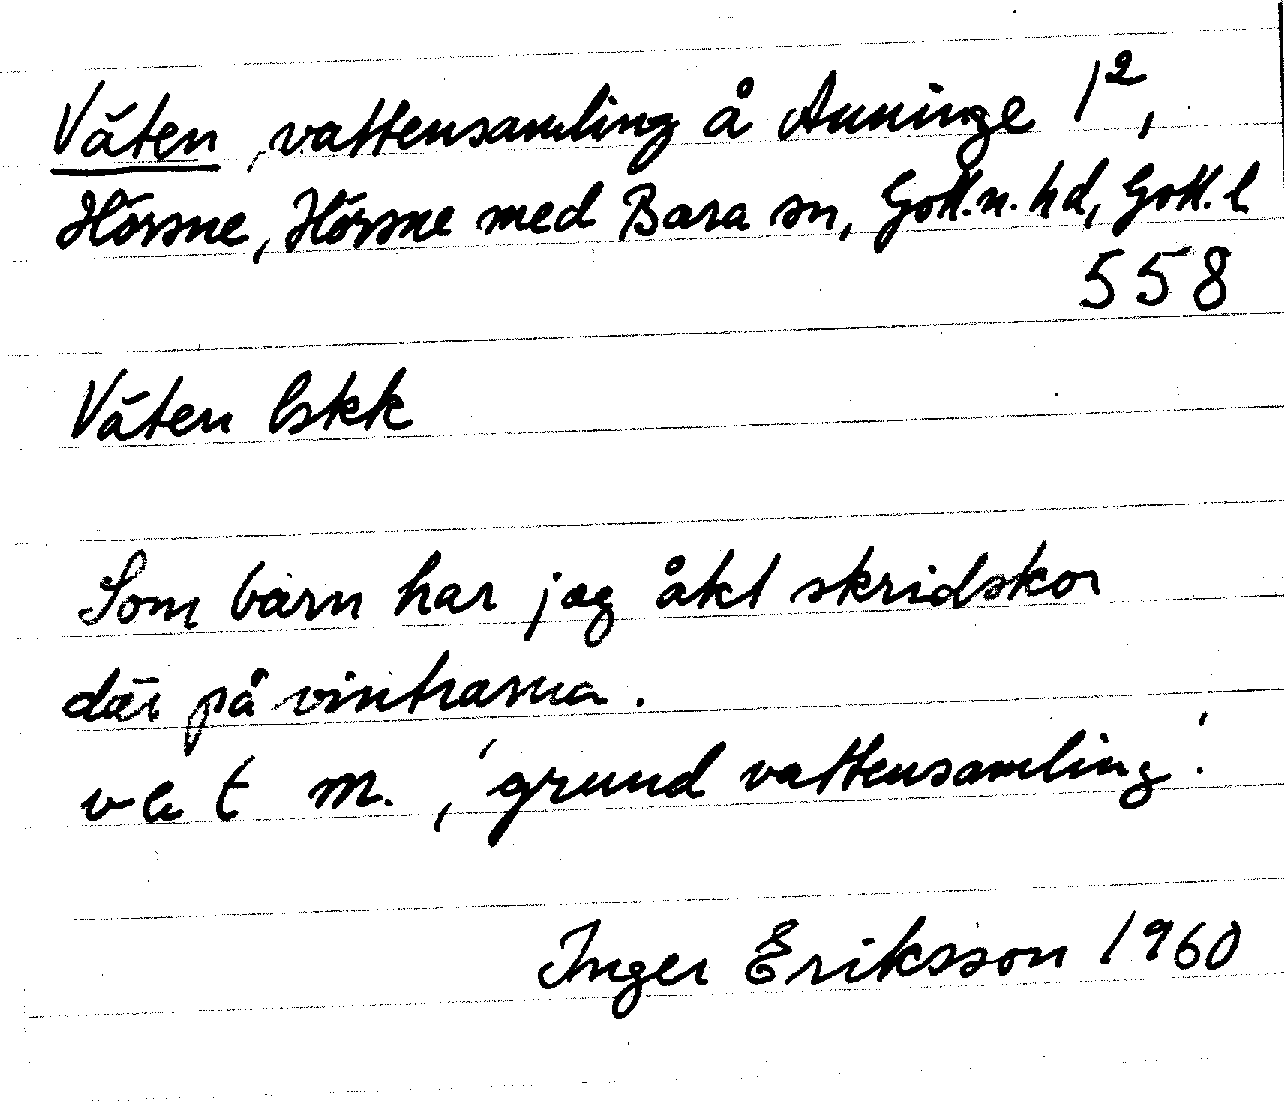 Väten, vattensamling å Anninge 1²,
Hörsne, Hörsne med Bara sn, Gotl.n.hd, Gotl.l
558
Väten bskk
Som barn har jag åkt skridskor
där på vintrarna.
m., 'grund vattensamling'.
Inger Eriksson 1960